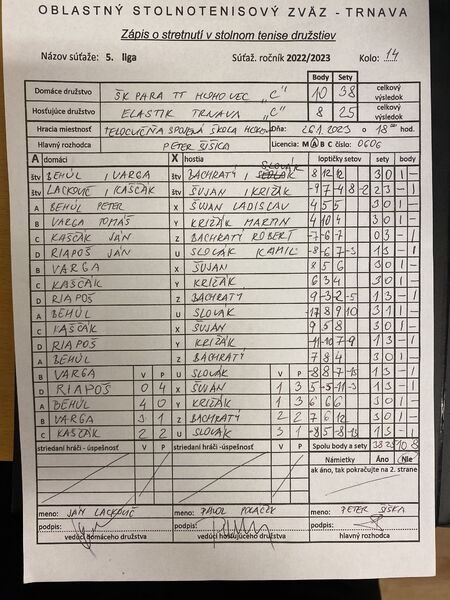 OBLASTNÝ STOLNOTENISOVÝ ZVÄZ - TRNAVA
Zápis o stretnutí v stolnom tenise družstiev
Názov súťaže: 5. liga Súťaž. ročník 2022/2023 Kolo: 14
Body Sety
Domáce družstvo ŠK PARA TT HLOHOVEC „C" 10 38 celkový výsledok
Hosťujúce družstvo ELASTIK TRNAVA „C" 8 25 celkový výsledok
Hracia miestnosť TELOCVIČŇA SPOJENÁ ŠKOLA Dňa: 2023 o 18 00 hod.
Hlavný rozhodca PETER ŠIŠKA Licencia: M A B C číslo: 0606
A domáci X hostia loptičky setov sety body
štv BEHÚL, VARGA štv BACHRATÝ, SLOVÁK 8 12 12 3 0 1 -
štv LACKOVIČ, KAŠČÁK štv ŠUJAN, KRIŽÁK -9 7 -4 8 -2 2 3 - 1
A BEHÚL PETER X ŠUJAN LADISLAV 4 5 5 3 0 1 -
B VARGA TOMÁŠ Y KRIŽÁK MARTIN 4 10 4 3 0 1 -
C KAŠČÁK JÁN Z BACHRATÝ RÓBERT -7 -6 -7 0 3 - 1
D RIAPOŠ JÁN U SLOVÁK KAMIL -8 -6 7 -3 1 3 - 1
B VARGA X ŠUJAN 8 5 6 3 0 1 -
C KAŠČÁK Y KRIŽÁK 6 3 4 3 0 1 -
D RIAPOŠ Z BACHRATÝ 9 -3 -2 -5 1 3 - 1
A BEHÚL U SLOVÁK -17 8 9 10 3 1 1 -
C KAŠČÁK X ŠUJAN 9 5 8 3 0 1 -
D RIAPOŠ Y KRIŽÁK -11 -10 7 -9 1 3 - 1
A BEHÚL Z BACHRATÝ 7 8 4 3 0 1 -
B VARGA V P U SLOVÁK V P -8 8 -7 -13 1 3 - 1
D RIAPOŠ 0 4 X ŠUJAN 1 3 5 -5 -11 -3 1 3 - 1
A BEHÚL 4 0 Y KRIŽÁK 1 3 6 6 6 3 0 1 -
B VARGA 3 1 Z BACHRATÝ 2 2 7 6 12 3 0 1 -
C KAŠČÁK 2 2 U SLOVÁK 3 1 -8 5 -8 -13 1 3 - 1
striedaní hráči - úspešnosť V P striedaní hráči - úspešnosť V P Spolu body a sety 38 25 10 8
Námietky Áno Nie
ak áno, tak pokračujte na 2. strane
meno: JÁN LACKOVIČ meno: PAVOL meno: PETER ŠIŠKA
podpis: podpis: podpis:
vedúci domáceho družstva vedúci hosťujúceho družstva hlavný rozhodca